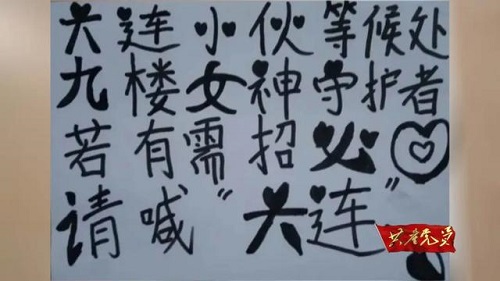 大连小伙等候处
九楼女神守护者
若有需招必
请喊“大连”
共产党员